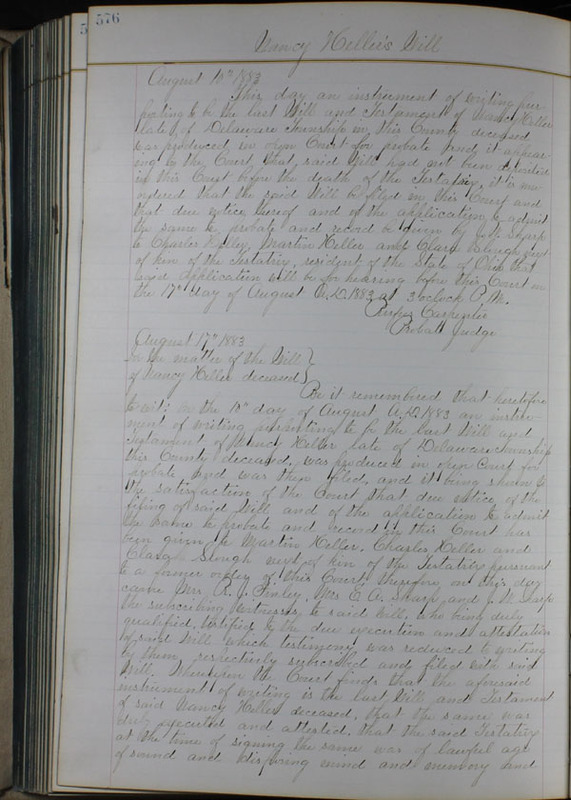 576
Nancy Heller's Will
August 10th 1883
This day an instrument of writing pur
porting to be the last Will and Testament of Nancy Heller
late of Delaware Township in this County deceased
was produced in open Court for probate And it appear-
ing to the Court, that, said Will had not been deposited
in this Court before the death of the Testatrix, it is
ordered that the said Will be filed in this Court and
that due notice thereof and of the application to admit
the same to probate and record be given by Sharp
to Charles Heller, Martin Heller and Clara Slough next
of kin of the Testatrix, resident of the State of Ohio that
said application will be for hearing before this Court on
the 17th day of August A.D. 1883 at 3 oclock P.M.
Carpenter
Probate Judge
August 17th 1883
In the matter of the Will }
of Nancy Heller deceased }
Be it remembered that heretofore
to wit: on the 10th day of August A.D. 1883 an instru-
ment of writing purporting to be the last Will and
Testament of Nancy Heller late of Delaware Township
this County deceased, was produced in open Court for
probate And was then filed, and it being shown to
the satisfaction of the Court that due notice of the
filing of said Will and of the application to admit
the same to probate and record in this Court has
been given to Martin Heller, Charles Heller and
Clara Slough next of kin of the Testatrix pursuant
to a former order of this Court, therefore on this day
came Mrs. R. J. Finley, Mrs E. A. Sharp and J. W. Sharp
the subscribing witnesses to said Will, who being duly
qualified, testified to the due execution and attestation
of said Will which testimony was reduced to writing
by them, respectively subscribed and filed with said
Will. Whereupon the Court finds that the aforesaid
instrument of writing is the last Will and Testament
of said Nancy Heller deceased, that the same was
duly executed and attested, that the said Testatrix
at the time of signing the same was of lawful age
of sound and disposing mind and memory and